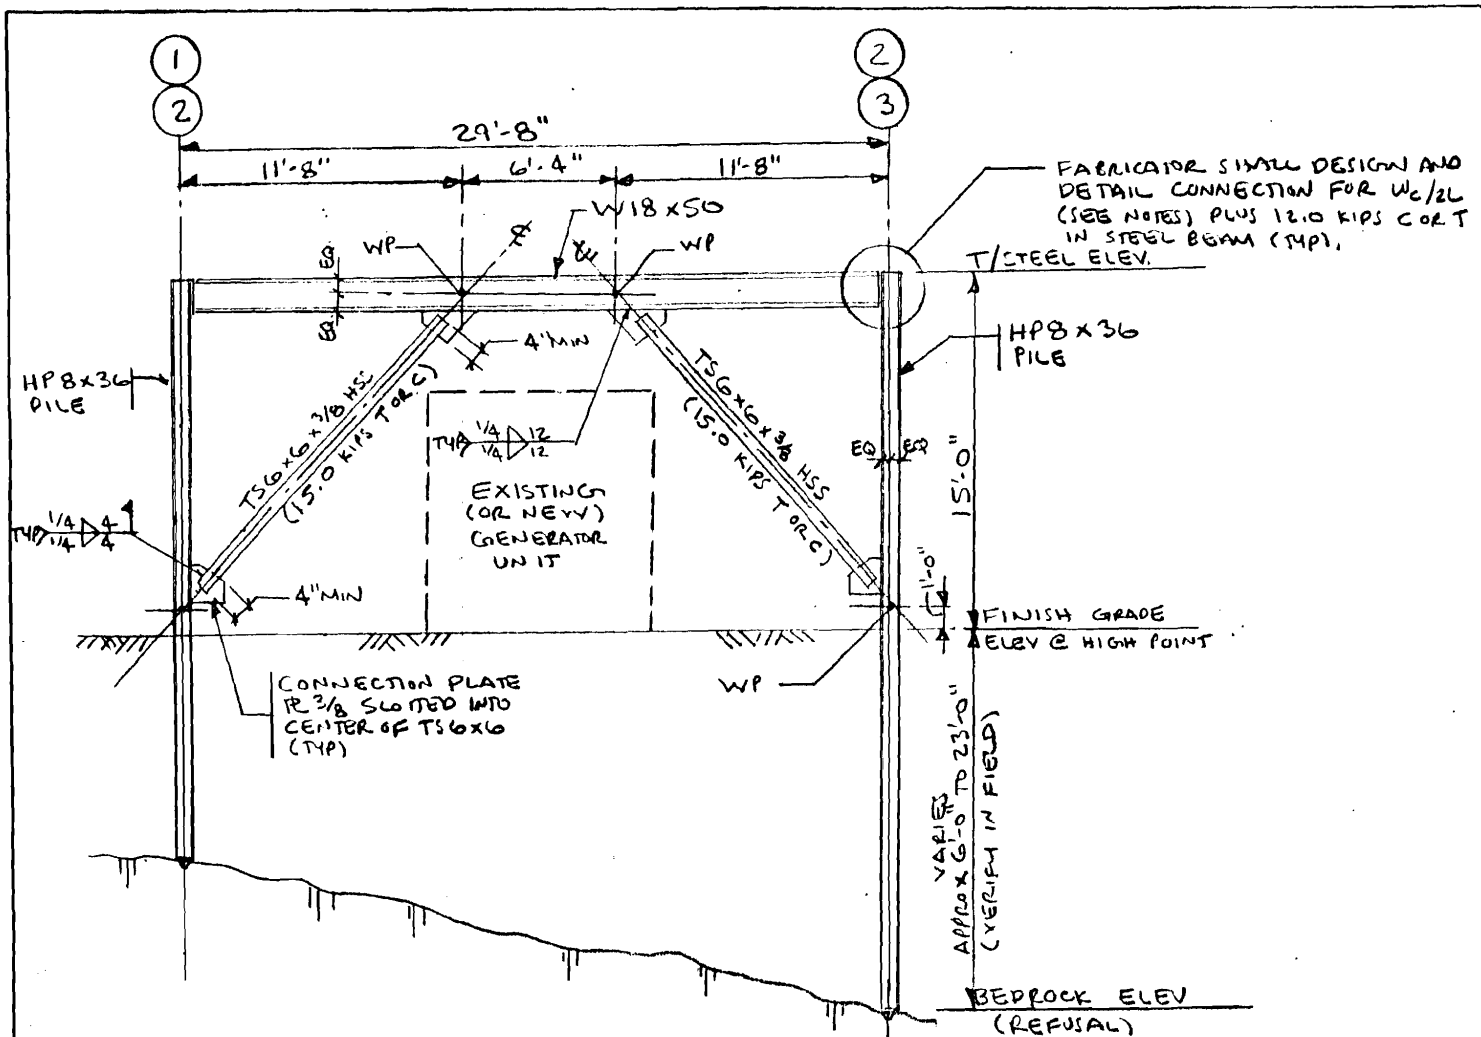 1
2
2
3
29'-8"
11'-8"
6'-4"
11'-8"
FABRICATOR SHALL DESIGN AND
DETAIL CONNECTION FOR Wc/2L
(SEE NOTES) PLUS 12.0 KIPS C OR T
IN STEEL BEAM (TYP).
W18x50
WP
WP
T/STEEL ELEV.
EQ
EQ
4"MIN
HP8x36
PILE
HP8x36
PILE
TS6x6x3/8 HSS
(15.0 KIPS T OR C)
TS6x6x3/8 HSS
(15.0 KIPS T OR C)
TYP 1/4 12
1/4 12
EQ EQ
15'-0"
EXISTING
(OR NEW)
GENERATOR
UNIT
TYP 1/4 4
1/4 4
4"MIN
1'-0"
FINISH GRADE
ELEV @ HIGH POINT
WP
CONNECTION PLATE
PL 3/8 SLOTTED INTO
CENTER OF TS6x6
(TYP)
VARIES
APPROX 6'-0" TO 23'-0"
(VERIFY IN FIELD)
BEDROCK ELEV
(REFUSAL)